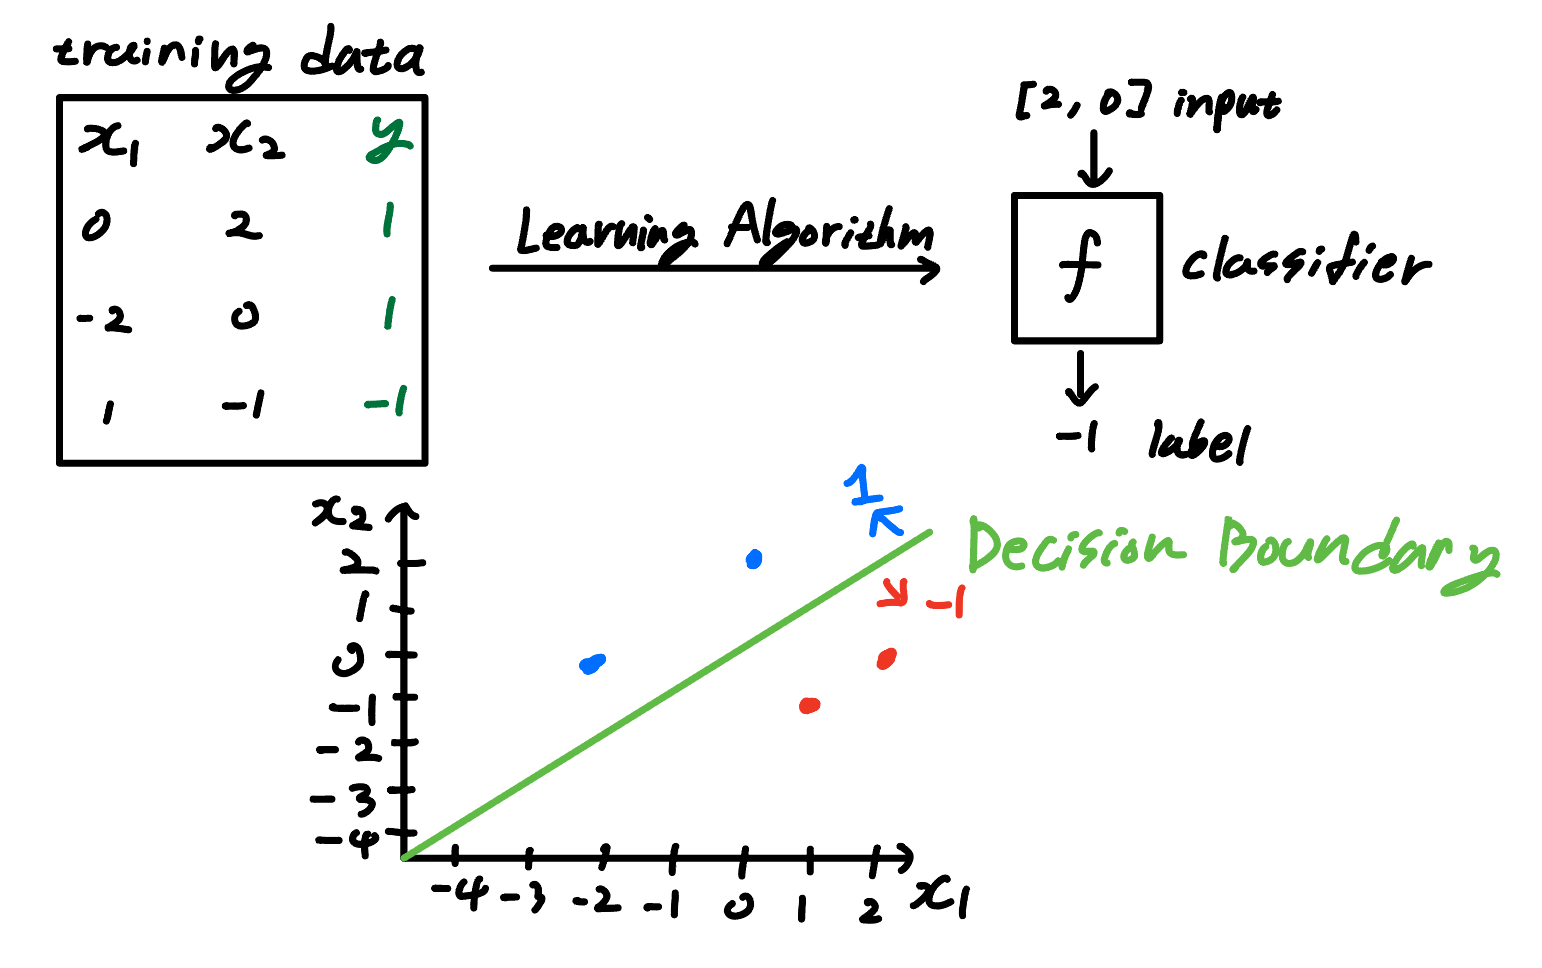 training data
x₁ x₂ y
0 2 1
-2 0 1
1 -1 -1
Learning Algorithm
[2, 0] input
f classifier
-1 label
x₂
2
1
0
-1
-2
-3
-4
1
Decision Boundary
-1
-4 -3 -2 -1 0 1 2 x₁